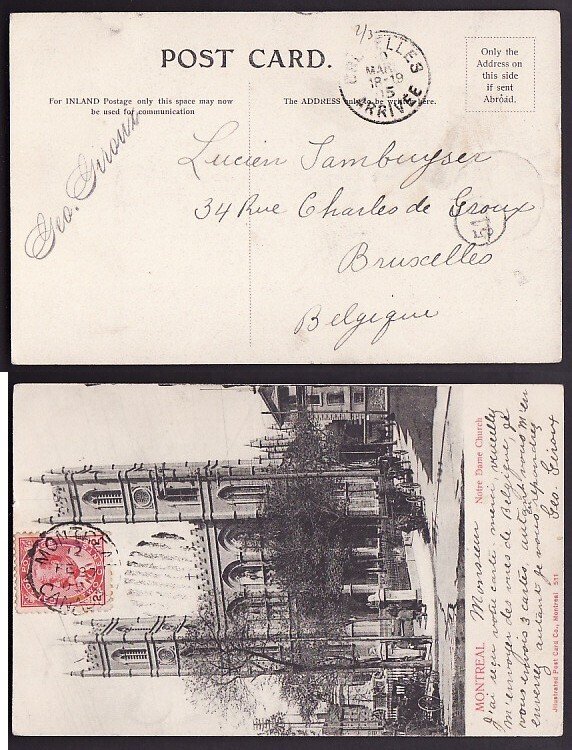 POST CARD.
Only the
Address on
this side
if sent
Abroad.
For INLAND Postage only this space may now
be used for communication
The ADDRESS only to be written here.
BRUXELLES
MAR
18-19
ARRIVÉE
Geo. Giroux
Lucien Tambuyser
34 Rue Charles de Groux
Bruxelles
Belgique
MONTREAL
Notre Dame Church
Monsieur
J'ai reçu votre carte merci, veuillez
m'envoyer des vues de Belgique, je
vous envois 3 cartes, autant vous m'en
enverrez autant je vous répondrez
Geo. Giroux
Illustrated Post Card Co., Montreal 511
MONTREAL